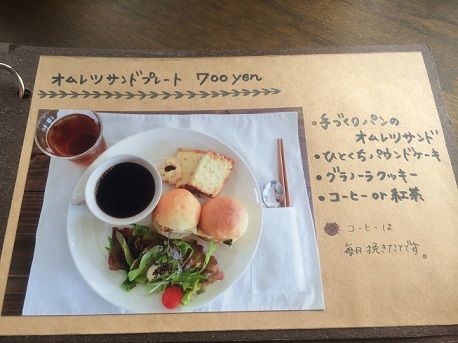 オムレツサンドプレート 700yen
・手づくりパンの
オムレツサンド
・ひとくちパウンドケーキ
・グラノーラクッキー
・コーヒー or 紅茶
コーヒーは
毎日挽きたてです。